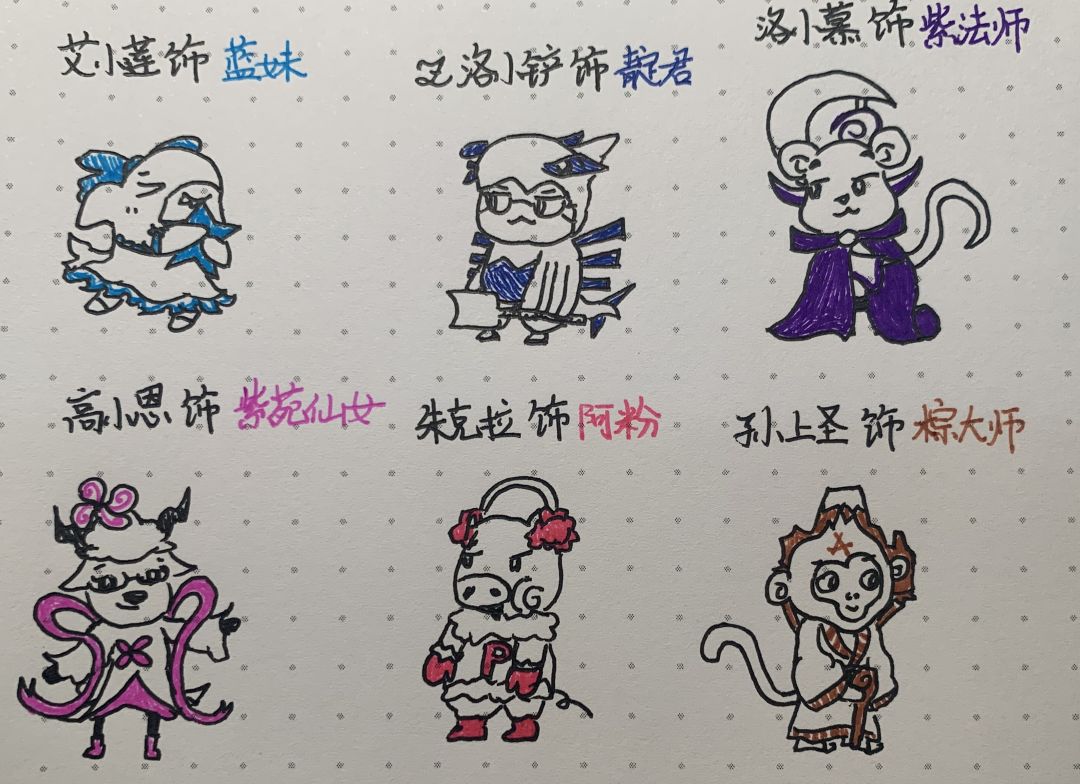 艾小莲饰 蓝妹
艾洛小铲饰 靛君
洛小慕饰 紫法师
高小思饰 紫苑仙女
朱克拉饰 阿粉
孙上圣饰 棕大师
G
P
A